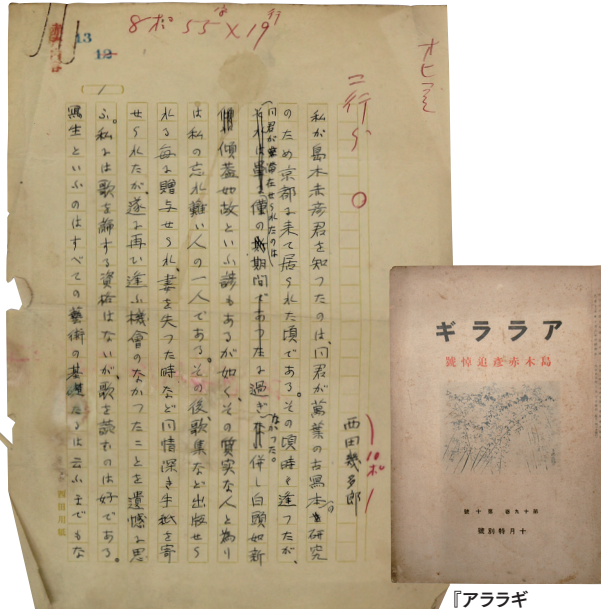 8ポ55字×19行
13
12
オビつき
二行分
西田幾多郎
10ポ
私が島木赤彦君を知つたのは、同君が萬葉の古寫本の研究
のため京都に来て居られた頃である。その頃時々逢つたが、
同君が滞在せられたのは
僅の期間であつたに過ぎなかつた。併し白頭如新
傾蓋如故といふ諺もあるが如く、その質実な人と為り
は私の忘れ難い人の一人である。その後、歌集など出版せら
れる毎に贈与せられ、妻を失つた時など同情深き手紙を寄
せられたが、遂に再び逢ふ機會のなかつたことを遺憾に思
ふ。私には歌を論ずる資格はないが、歌を読むのは好である。
寫生といふのはすべての藝術の基礎たるは云ふまでもな
アララギ
島木赤彦追悼號
第十九卷 第十號
十月特別號
『アララギ